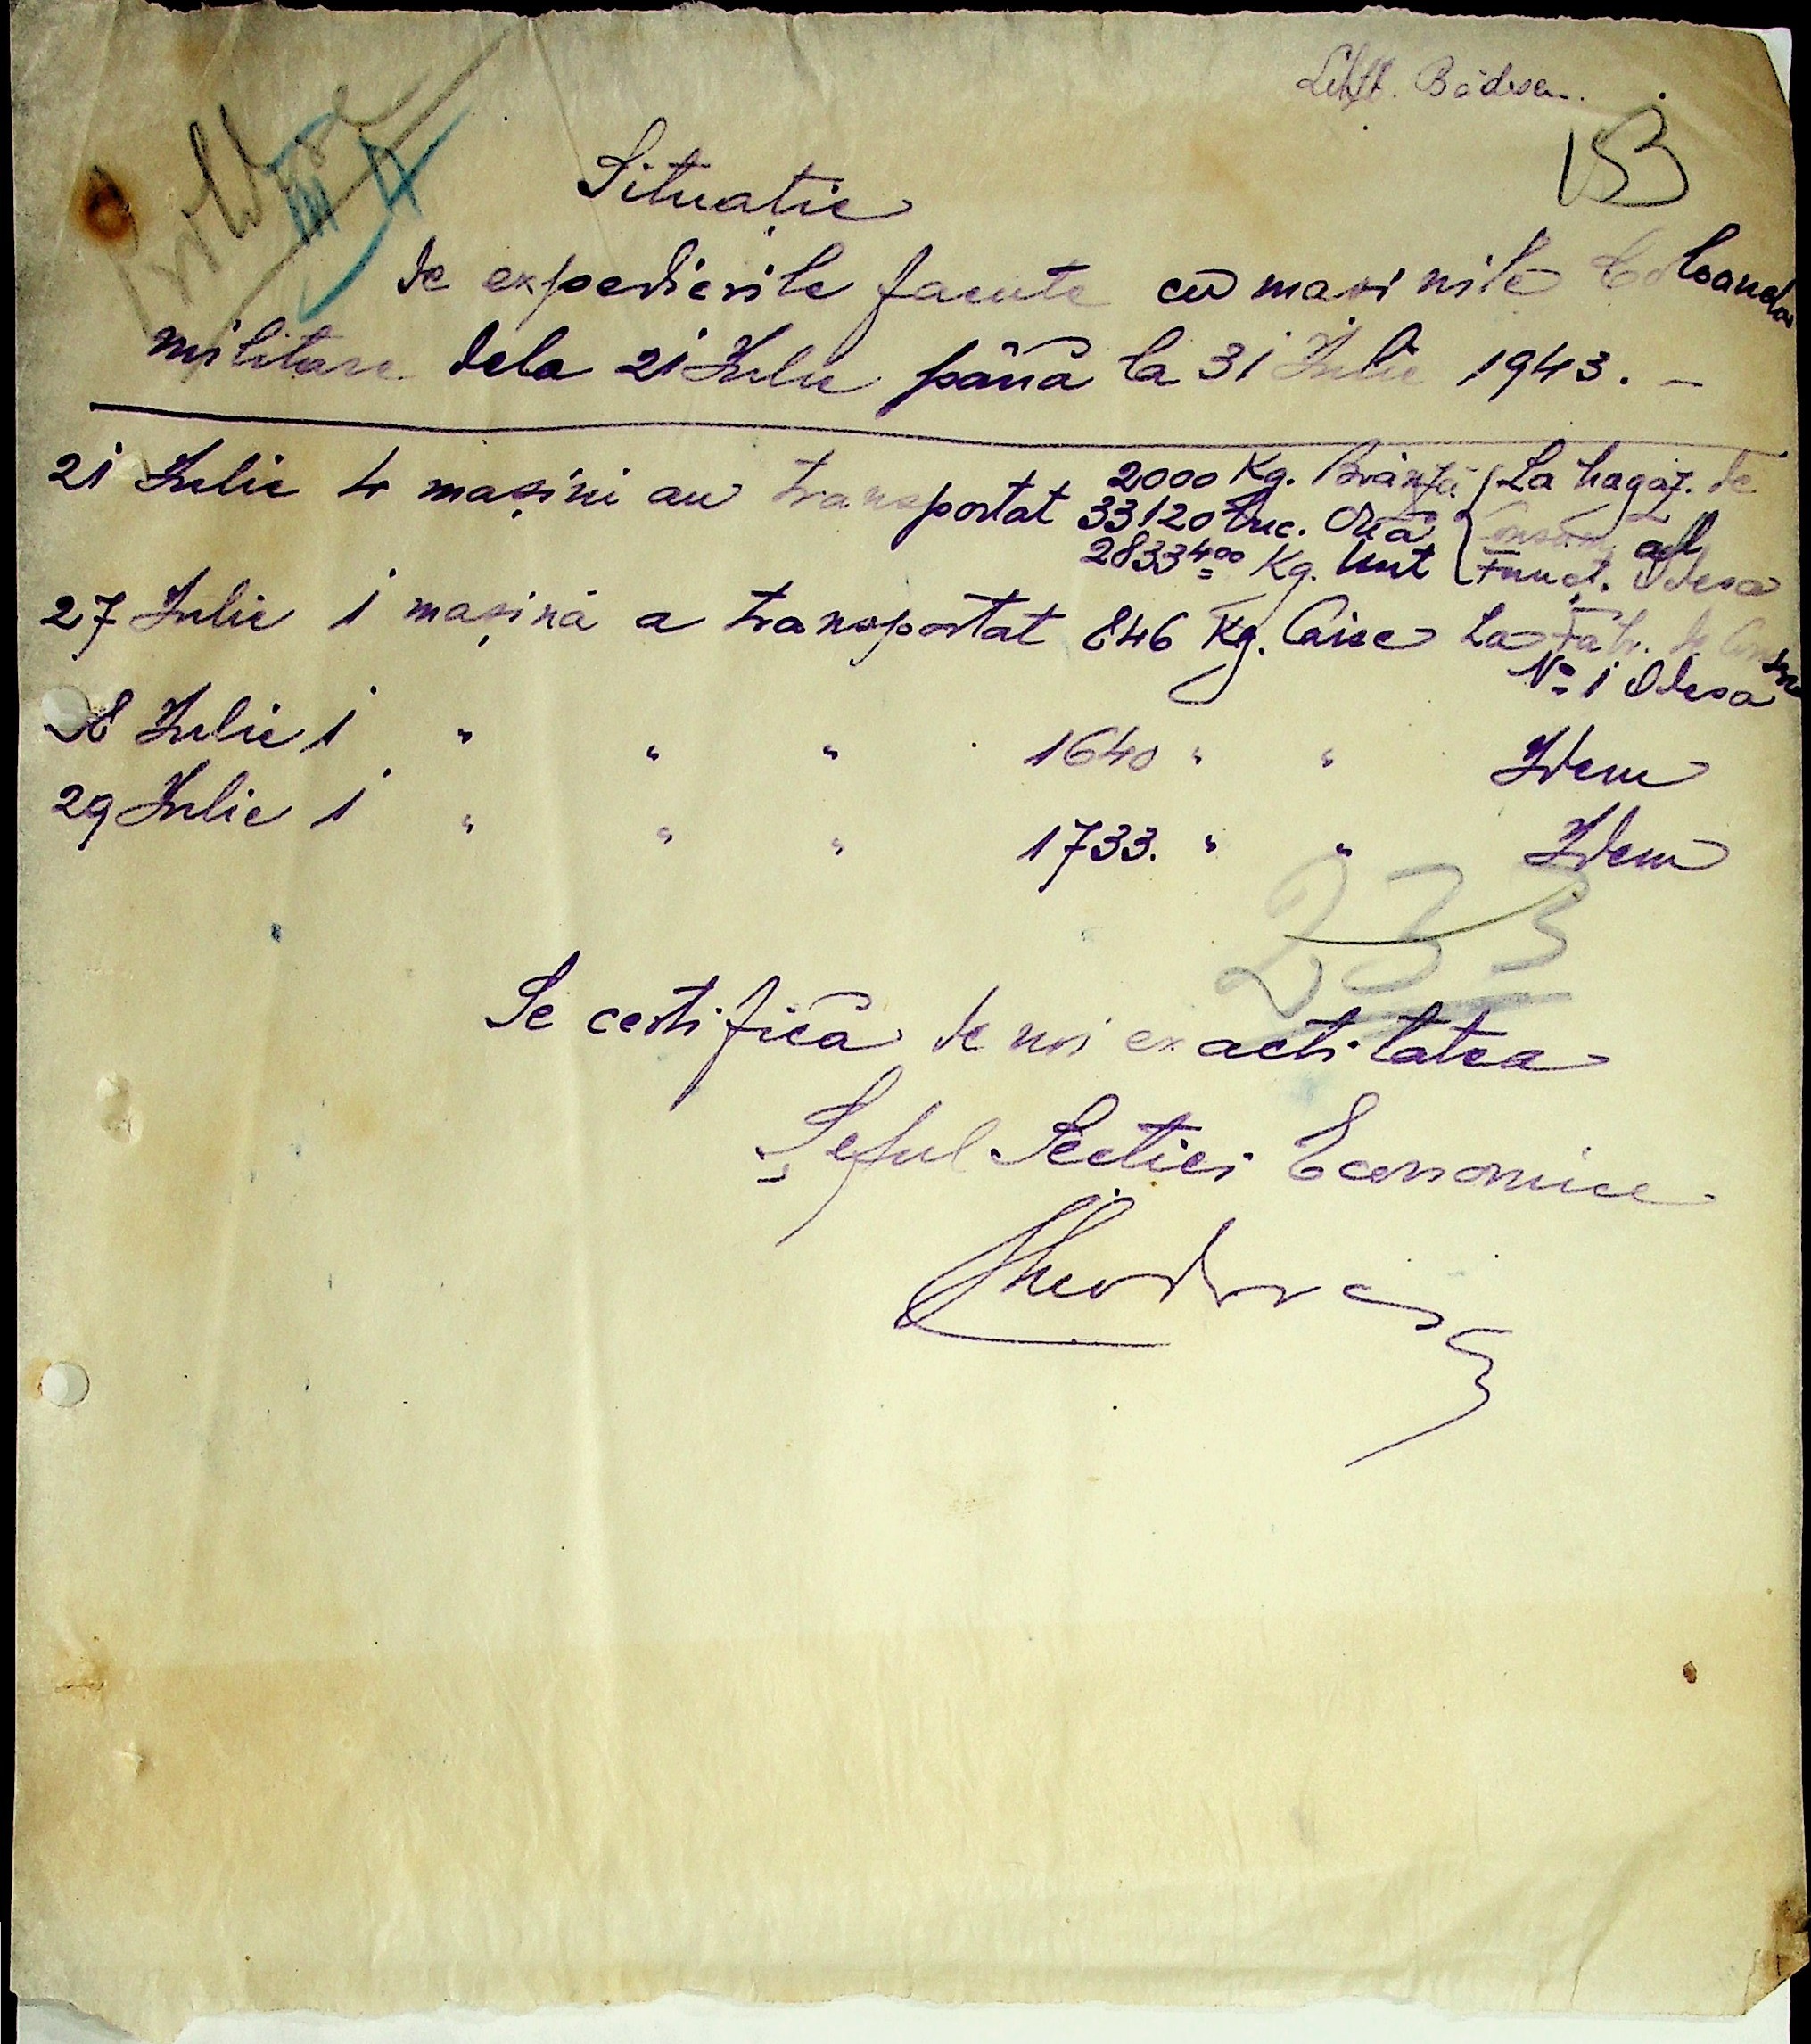 153
Situație
de expedierile facute cu masinile Coloanda
militare dela 21 Iulie până la 31 Iulie 1943. —
21 Iulie 4 mașini au transportat 2000 Kg. Brânză La Magaz. de
33120 buc. Ouă Consom al
2833400 Kg. Unt Funcț. Odesa
27 Iulie 1 mașină a transportat 846 Kg. Caise La Fabr. de Conserve
No 1 Odesa
28 Iulie 1 " " " 1640 " " Idem
29 Iulie 1 " " " 1733. " " Idem
233
Se certifică de noi exactitatea
Șeful Secției Economice